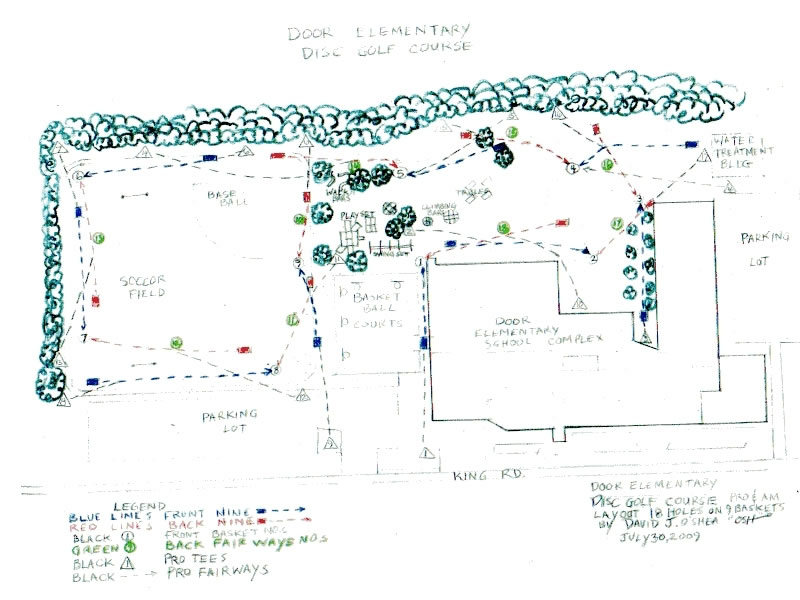 DOOR ELEMENTARY
DISC GOLF COURSE
WATER
TREATMENT
BLDG
BASE
BALL
PLAYSET
CLIMBING
SWING SET
SOCCOR
FIELD
BASKET
BALL
COURTS
DOOR
ELEMENTARY
SCHOOL COMPLEX
PARKING
LOT
PARKING
LOT
KING RD.
LEGEND
BLUE LINES FRONT NINE
RED LINES BACK NINE
BLACK 1 FRONT BASKET NO.S
GREEN BACK FAIRWAYS NO.S
BLACK 1 PRO TEES
BLACK PRO FAIRWAYS
DOOR ELEMENTARY
DISC GOLF COURSE PRO & AM
LAYOUT 18 HOLES ON 9 BASKETS
BY DAVID J. O'SHEA "OSH"
JULY 30, 2009